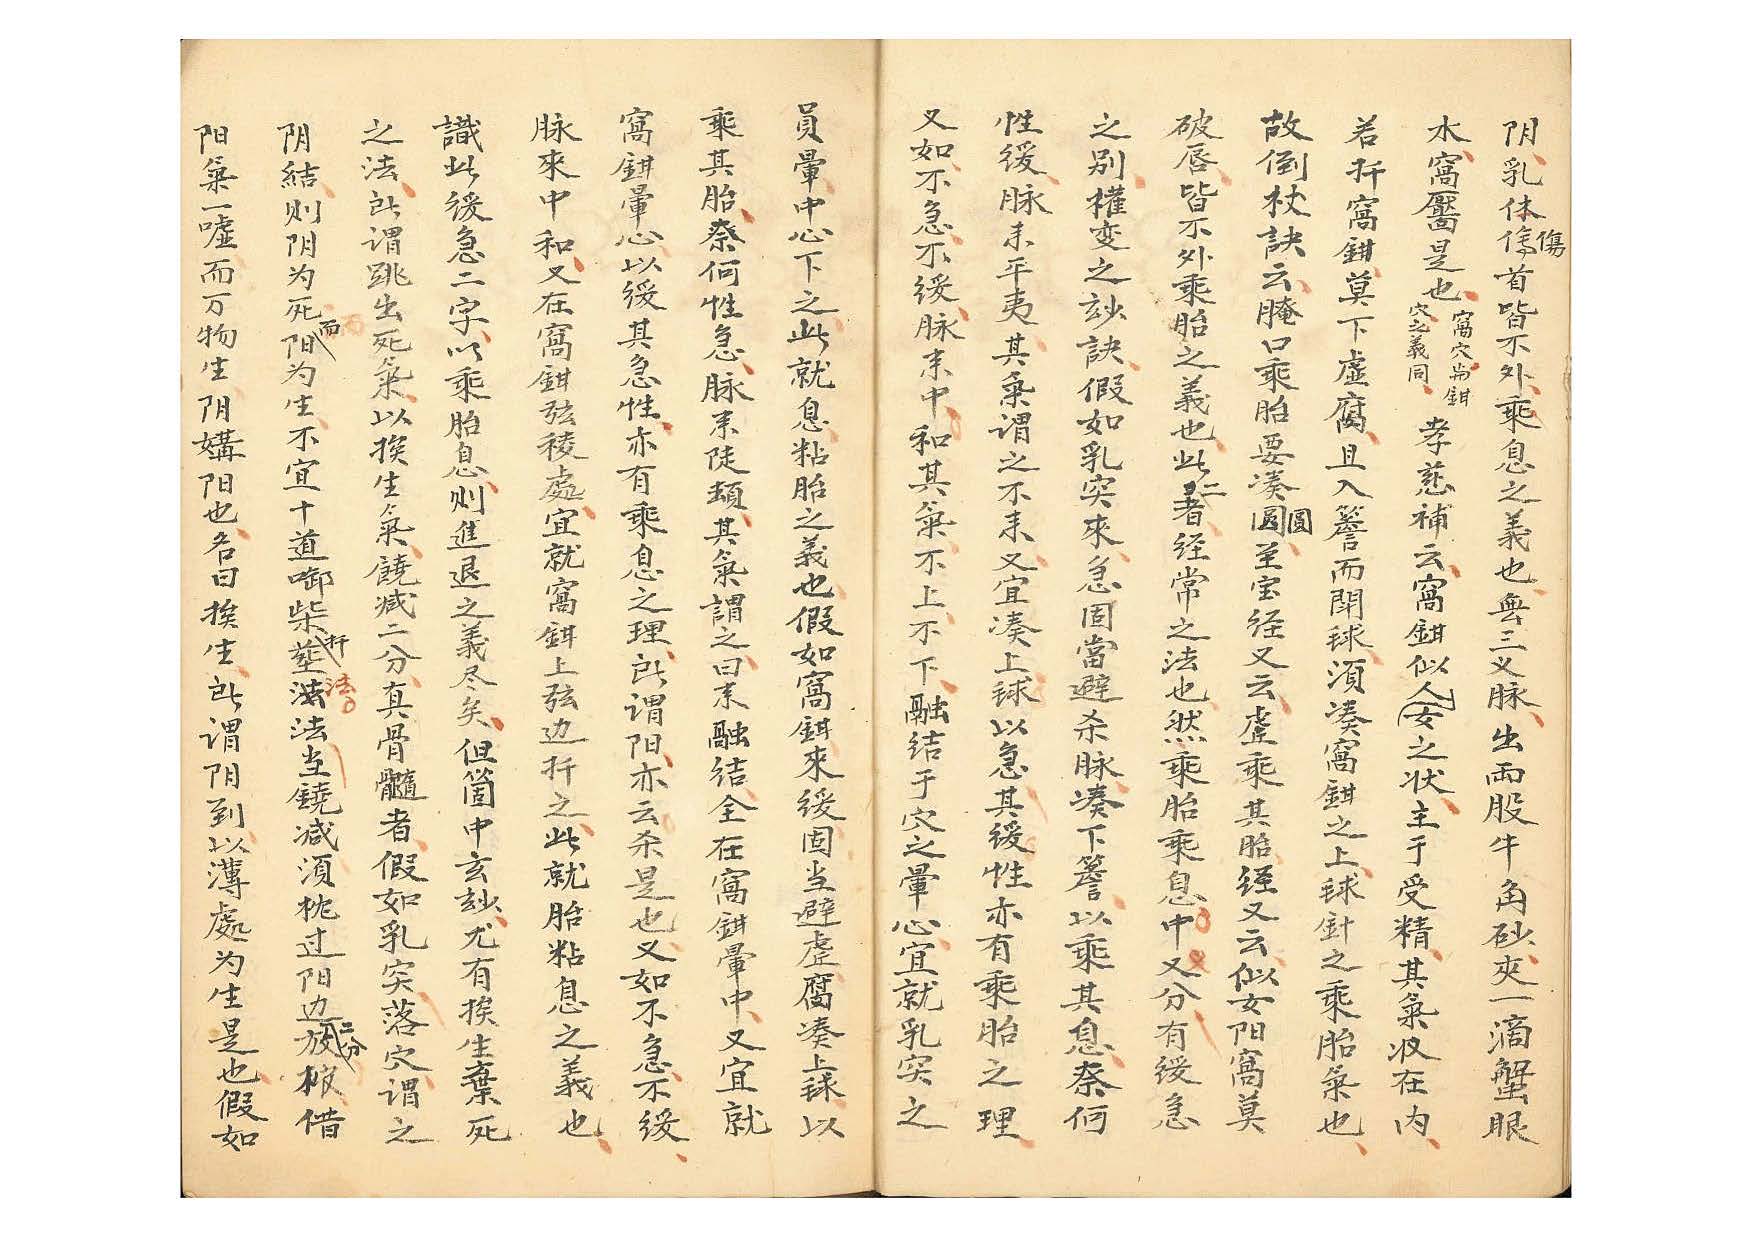 阴乳体傷首皆不外乘息之義也無三义脉出两股牛角砂夾一滴蟹眼
水窩靨是也窩穴当鉗穴之義同孝慈補云窩鉗似人女之状主于受精其氣收在内
若扦窩鉗莫下虚腐且入簷而開球須凑窩鉗之上球針之乘胎氣也
故倒杖訣云腌口乘胎要凑圓至宝经又云虚乘其胎经又云似女阳窩莫
破唇皆不外乘胎之義也此二者经常之法也然乘胎乘息中又分有缓急
之别權变之玅訣假如乳突來急固當避杀脉凑下簷以乘其息奈何
性缓脉来平夷其氣謂之不来又宜凑上球以急其缓性亦有乘胎之理
又如不急不缓脉来中和其氣不上不下融结于穴之暈心宜就乳突之
員暈中心下之此就息粘胎之義也假如窩鉗來缓固当避虚腐凑上球以
乘其胎奈何性急脉来陡頓其氣謂之曰来融结全在窩鉗暈中又宜就
窩鉗暈心以缓其急性亦有乘息之理所谓阳亦云杀是也又如不急不缓
脉來中和又在窩鉗弦稜處宜就窩鉗上弦边扦之此就胎粘息之義也
識此缓急二字以乘胎息则進退之義尽矣但箇中玄玅尤有挨生棄死
之法所谓跳出死氣以挨生氣饒减二分真骨髓者假如乳突落穴谓之
阴结则阴为死而阳为生不宜十道啣柴扦法当饒减須枕过阳边二分放棺借
阳氣一嘘而万物生阴媾阳也名曰挨生所谓阴到以薄處为生是也假如